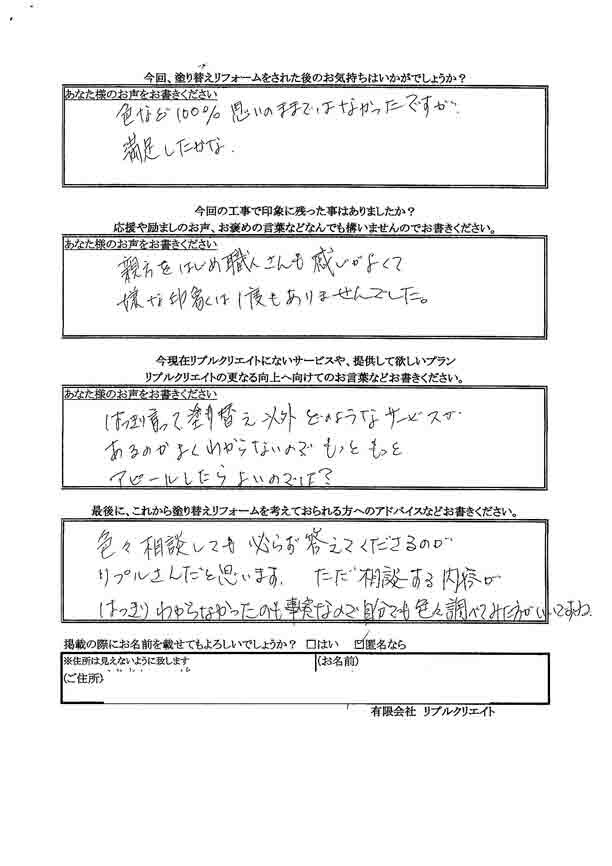 今回、塗り替えリフォームをされた後のお気持ちはいかがでしょうか?
あなた様のお声をお書きください
色など100%思いのままではなかったですが、
満足したかな。
今回の工事で印象に残った事はありましたか?
応援や励ましのお声、お褒めの言葉などなんでも構いませんのでお書きください。
あなた様のお声をお書きください
親方をはじめ職人さんも感じがよくて
嫌な印象は1度もありませんでした。
今現在リプルクリエイトにないサービスや、提供して欲しいプラン
リプルクリエイトの更なる向上へ向けてのお言葉などお書きください。
あなた様のお声をお書きください
はっきり言って塗り替え以外どのようなサービスが
あるのかよくわからないので もっともっと
アピールしたらよいのでは?
最後に、これから塗り替えリフォームを考えておられる方へのアドバイスなどお書きください。
色々相談しても必らず答えてくださるのが
リプルさんだと思います。 ただ相談する内容が
はっきりわからなかったのも事実なので自分でも色々調べてみた方がいいですね。
掲載の際にお名前を載せてもよろしいでしょうか? □はい ☑匿名なら
※住所は見えないように致します (お名前)
(ご住所)
有限会社 リプルクリエイト